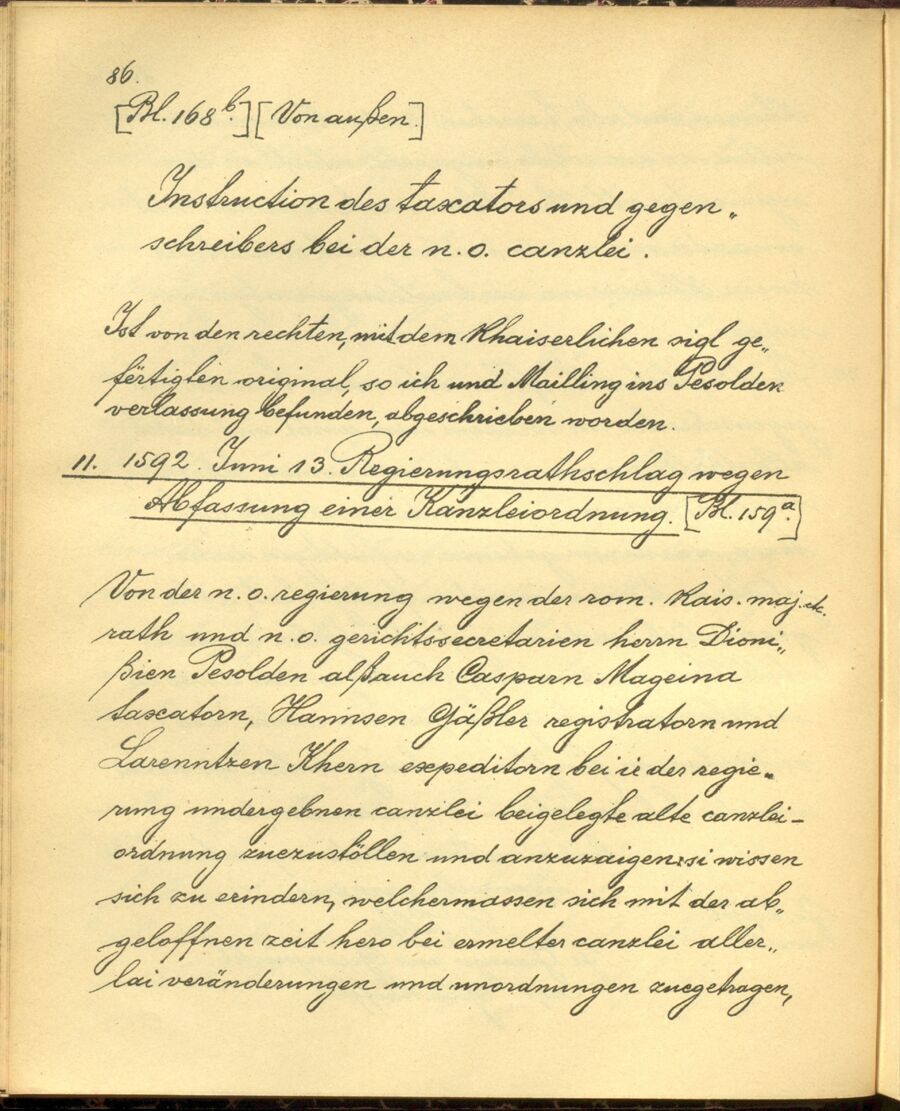 86.
[Bl. 168 b.] [Von außen.]
Instruction des taxators und gegen„
schreibers bei der n. o. canzlei.
Ist von den rechten, mit dem Khaiserlichen sigl ge„
fertigten original, so ich und Mailling ins Pesolden
verlassung befunden, abgeschrieben worden.
11. 1592. Juni 13. Regierungsrathschlag wegen
Abfassung einer Kanzleiordnung. [Bl. 159 a.]
Von der n. o. regierung wegen der rom. Kais. maj. etc.
rath und n. o. gerichtssecretarien herrn Dioni„
ßien Pesolden alß auch Casparn Mageina
taxatorn, Hannsen Gäßler registratorn und
Larenntzen Khern expeditorn bei ir der regie„
rung undergebnen canzlei beigelegte alte canzlei-
ordnung zuezustöllen und anzuzaigen: si wissen
sich zu erindern, welchermassen sich mit der ab„
geloffnen zeit hero bei ermelter canzlei aller„
lai veränderungen und unordnungen zuegetragen,